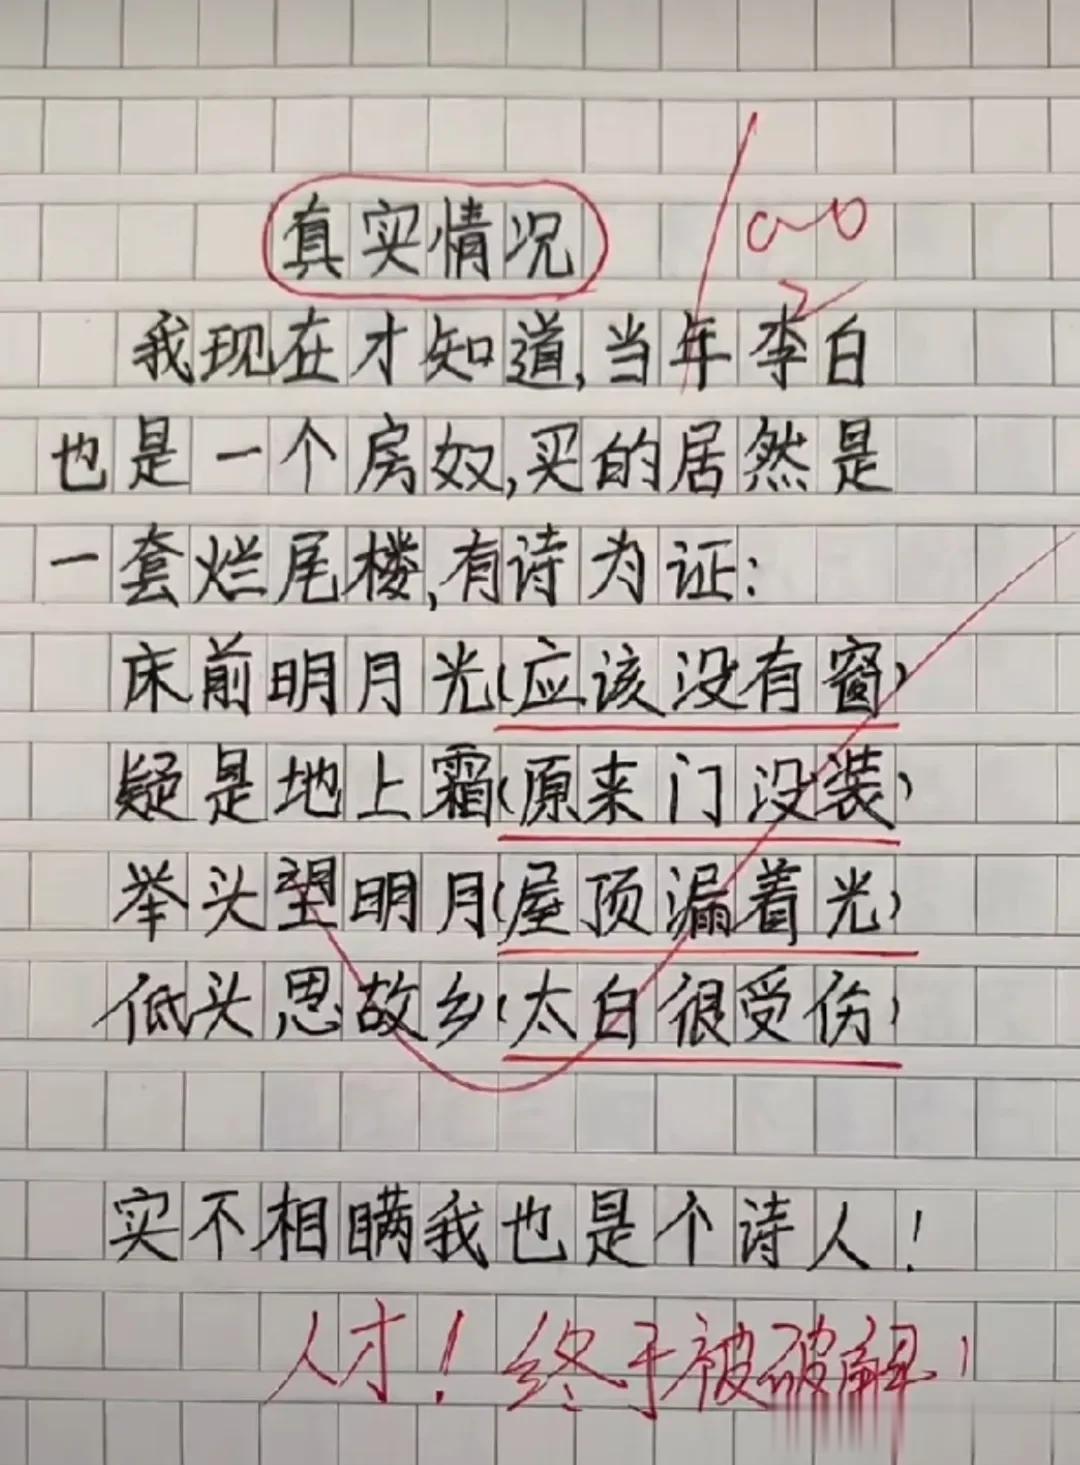 真实情况
100
我现在才知道,当年李白
也是一个房奴,买的居然是
一套烂尾楼,有诗为证:
床前明月光(应该没有窗)
疑是地上霜(原来门没装)
举头望明月(屋顶漏着光)
低头思故乡(太白很受伤)
实不相瞒我也是个诗人!
人才!终于被破解!